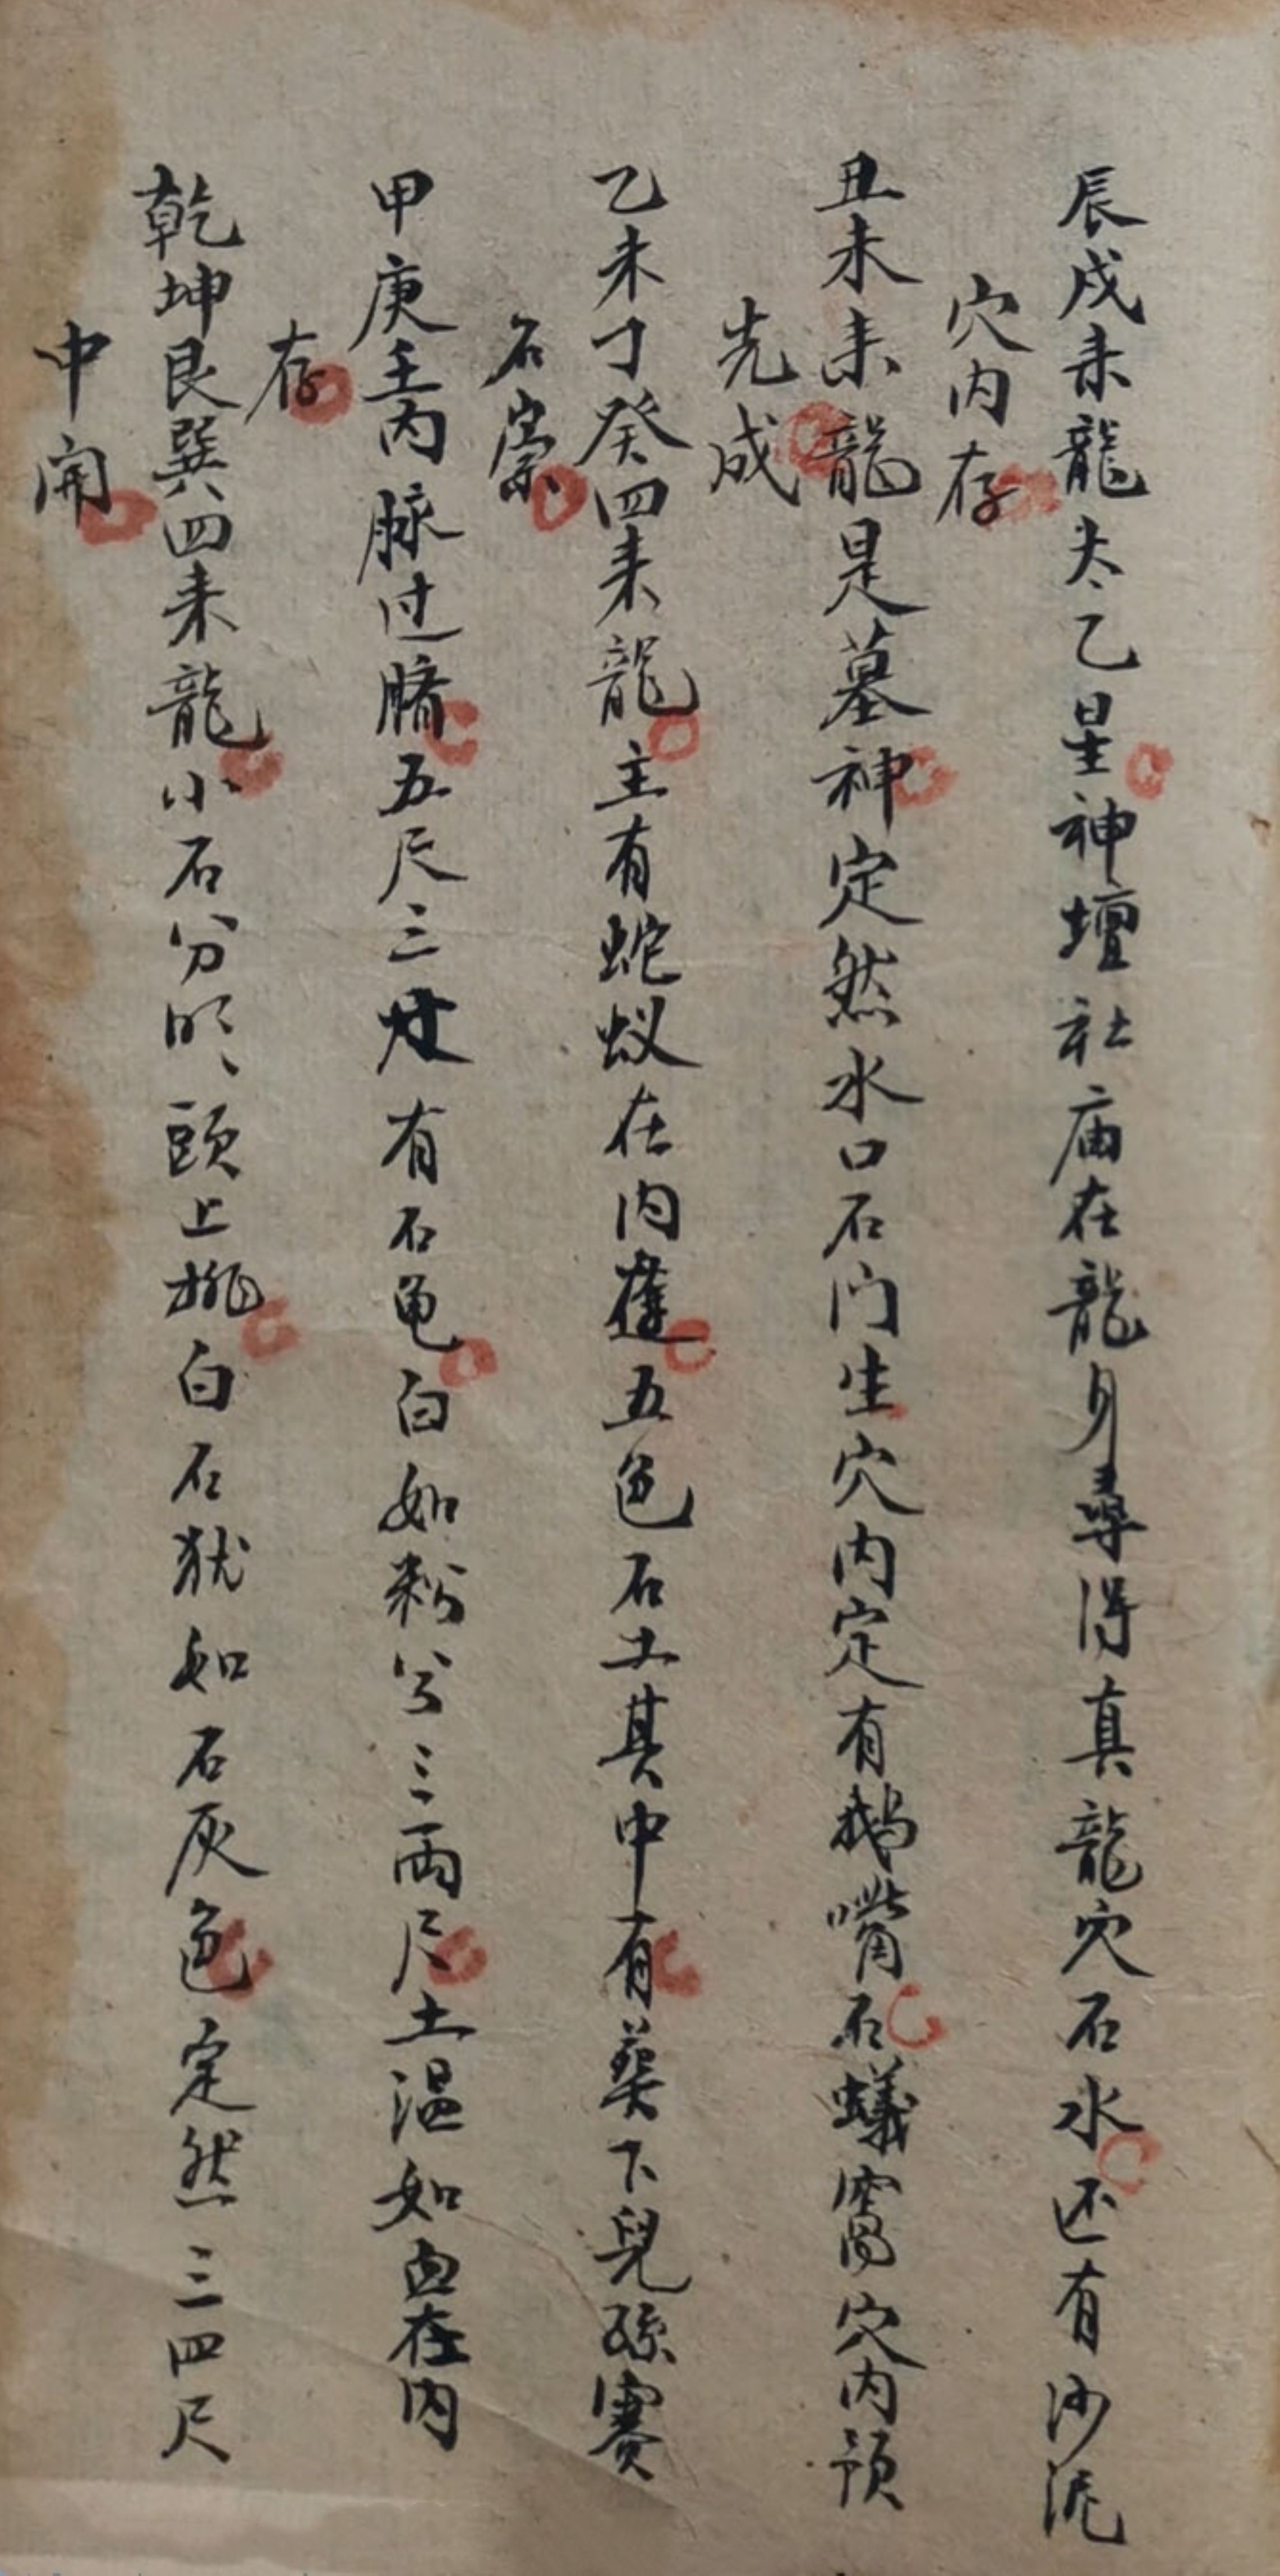 辰戌来龍太乙星神壇社庙在龍身尋得真龍穴石水还有沙泥
穴内存
丑未来龍是墓神定然水口石门生穴内定有鵝嘴石蟻窩穴内预
先成
乙未丁癸四来龍主有蛇蚁在内蔵五色石土其中有葵下兒孫賽
石崇
甲庚壬丙脉过臍五尺三寸有石龟白如粉兮三両尺土温如血在内
存
乾坤艮巽四来龍小石分明頭上挑白石犹如石灰色定然三四尺
中開